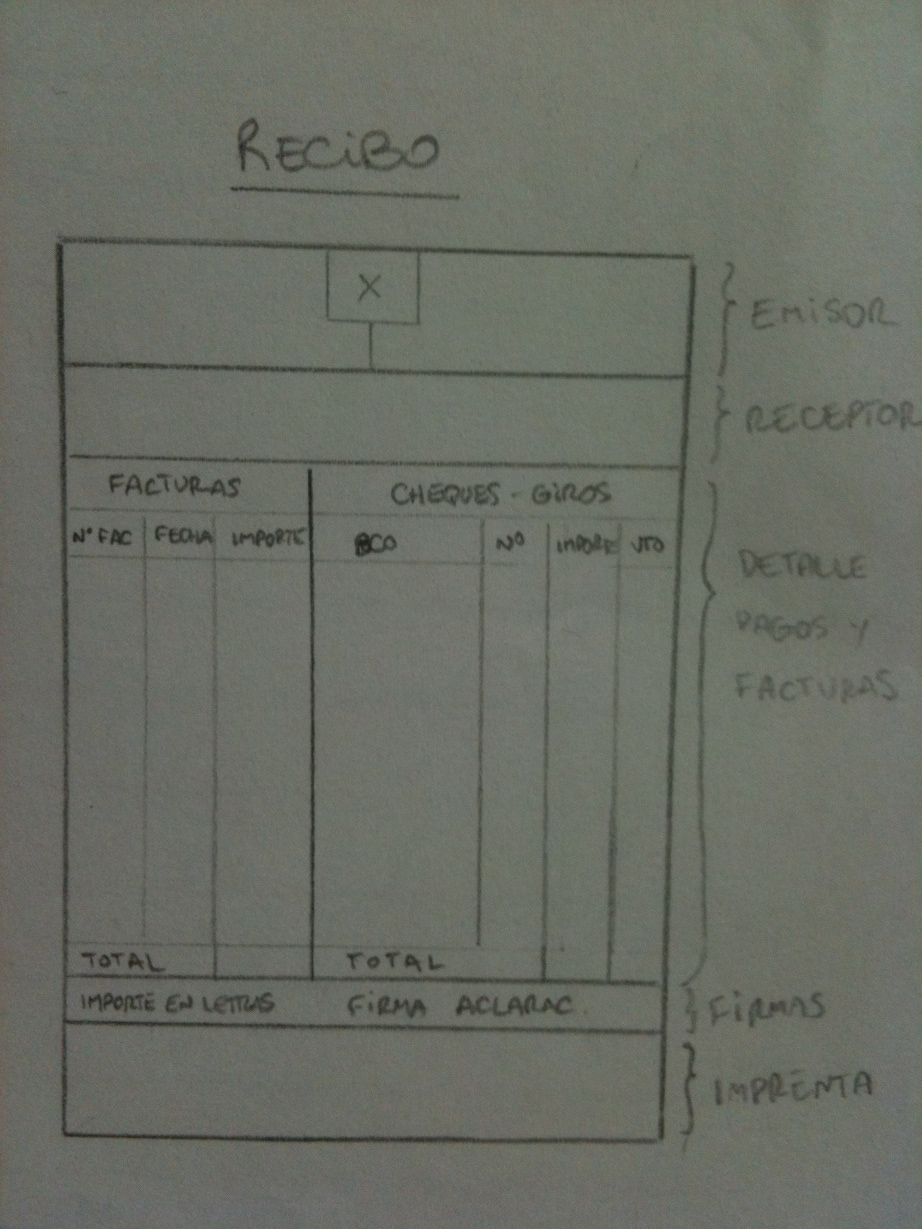 RECIBO
X
EMISOR
RECEPTOR
FACTURAS
CHEQUES - GIROS
Nº FAC FECHA IMPORTE BCO Nº IMPORE VTO
DETALLE
PAGOS Y
FACTURAS
TOTAL TOTAL
IMPORTE EN LETRAS FIRMA ACLARAC.
FIRMAS
IMPRENTA